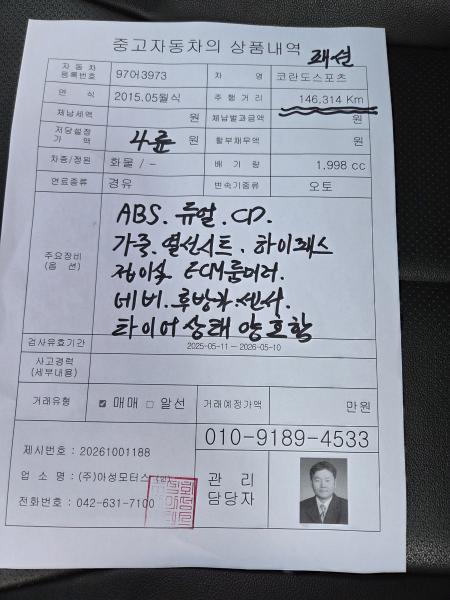 중고자동차의 상품내역 패션
자동차등록번호 97어3973 차 명 코란도스포츠
연 식 2015.05월식 주 행 거 리 146,314 Km
체납세액 원 체납벌과금액 원
저당설정가 액 4륜 원 할부채무액 원
차종/정원 화물 / - 배 기 량 1,998 cc
연료종류 경유 변속기종류 오토
주요장비
(옵 션)
ABS. 듀얼. CD.
가죽. 열선시트. 하이패스
접이식 ECM룸미러.
네비. 후방카 센서.
타이어 상태 양호함
검사유효기간 2025-05-11 ~ 2026-05-10
사고경력
(세부내용)
거래유형 매매 알선 거래예정가액 만원
010-9189-4533
제시번호 : 20261001188
업 소 명 : (주)아성모터스 (인)
전화번호 : 042-631-7100
관 리
담당자